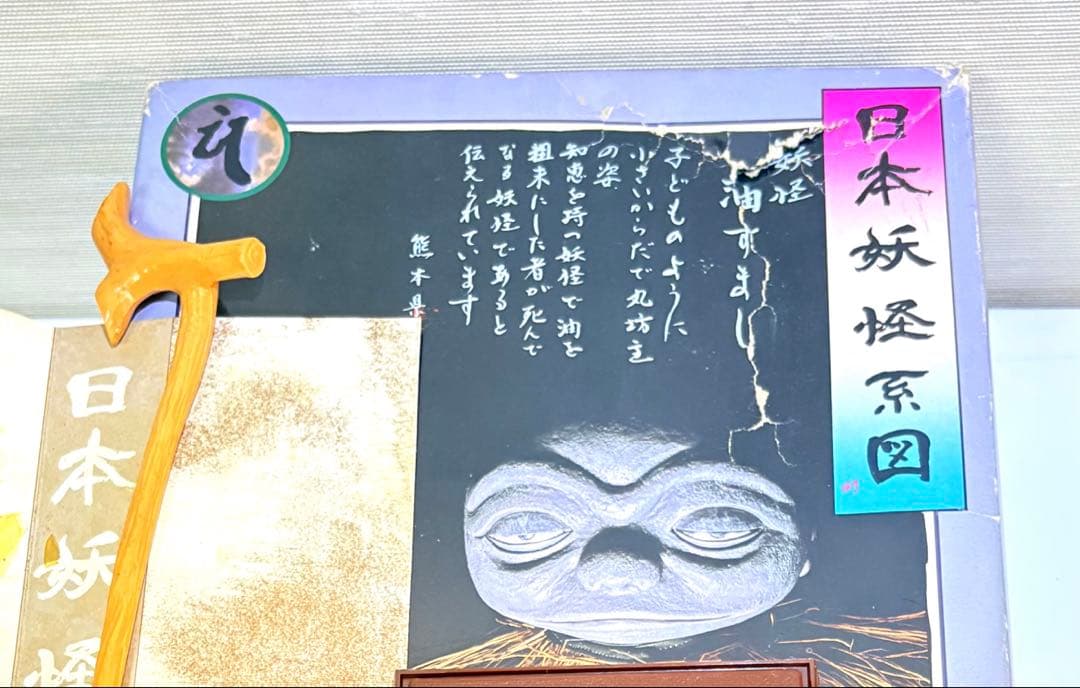 日本妖怪系図
妖怪
油すまし
子どものように
小さいからだで丸坊主
の姿
知恵を持つ妖怪で油を
粗末にした者が死んで
なる妖怪であると
伝えられています
熊本県
日本妖怪